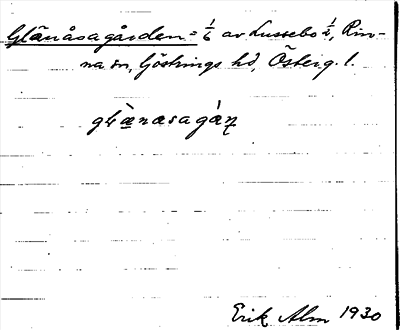 Glänåsagården = 1/6 av Lussebo 1/2, Rin-
na sn, Göstrings hd, Österg. l.
glæ̀nasagán
Erik Alm 1930